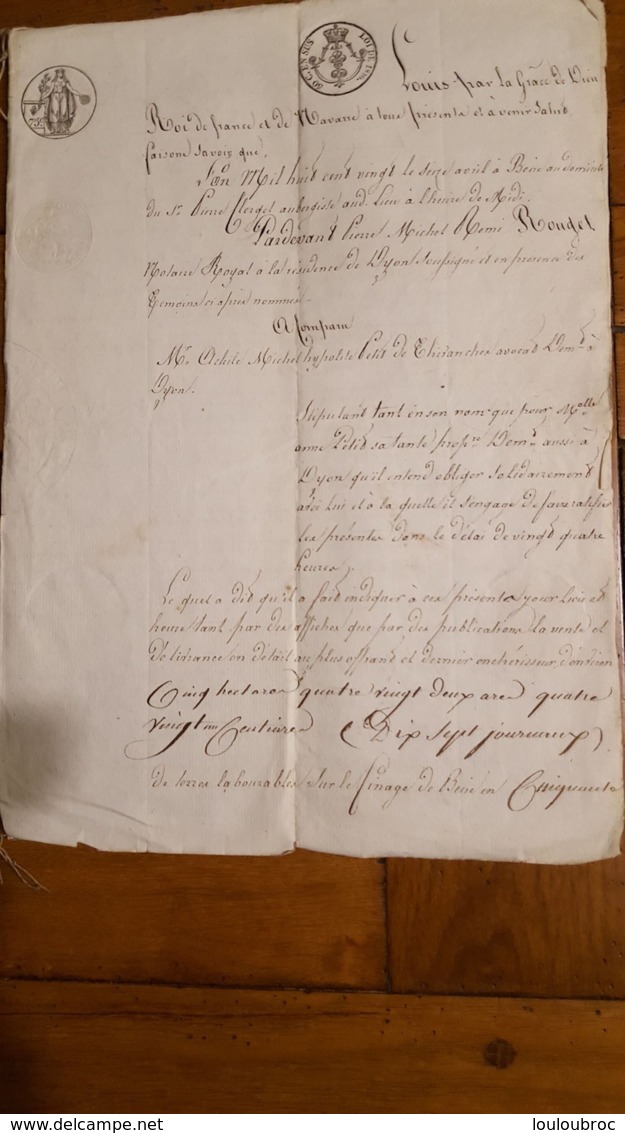 50 C. EN SUS
LOI DE 1816.
75
Louis par la Grâce de Dieu
Roi de france et de Navarre à tous présents et à venir Salut
faisons Savoir que,
L'an Mil huit cent vingt le seize avril à Beire au domicile
du Sr. Pierre Clerget aubergiste aud. Lieu à l'heure de Midi.
Pardevant Pierre Michel Remi Rouget
Notaire Royal à la résidence de Dyon soussigné et en présence des
témoins ci après nommés.
A Comparu
Mr. Achile Michel hypolite Petit de Thivanches avocat Demt. à
Dyon.
Stipulant tant en son nom que pour Molle
anne Petit sa tante propre. Demt. aussi à
Dyon qu'il entend obliger solidairement
avec Lui et à la quelle il s'engage de faire ratifier
les présentes dans le délai de vingt quatre
heures,
Le quel a dit qu'il a fait indiquer à ces présents jour Lieu et
heure tant par des affiches que par des publications la vente et
délivrance en détail au plus offrant et dernier enchérisseur, d'environ
Cinq hectares quatre vingt deux ares quatre
vingt un Centiares (Dix sept journaux)
de terres labourables sur le finage de Beire en
www.delcampe.net
louloubroc